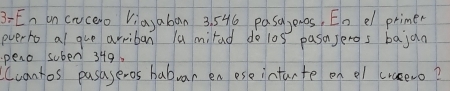 3-En un crucero Viajaban 3.546 pasajeros. En el primer
puerto al que arriban la mitad de los pasajeros bajan
pero suben 349.
¿Cuantos pasajeros habran en ese instante en el crucero?